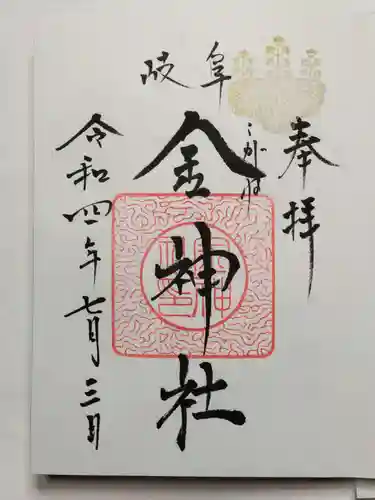 奉拝
岐阜
金神社
こがね
令和四年七月三日